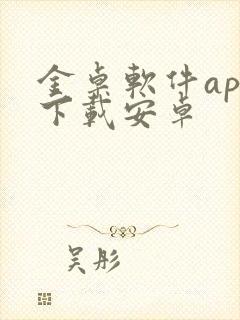 金桌軟件ap
下載安卓
吴彤